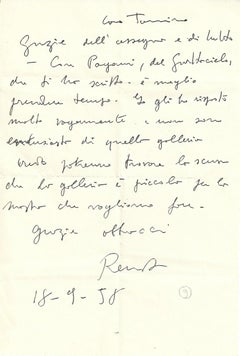 Caro Tannino
Grazie dell'assegno e di tutto
— Con Pagani, del Grattacielo,
che ti ha scritto è meglio
prendere tempo. Io gli ho risposto
molto vagamente. non sono
entusiasta di quella galleria
potremo trovare la scusa
che la galleria è piccola per la
mostra che vogliamo fare.
Grazie abbracci
Renato
18-9-58